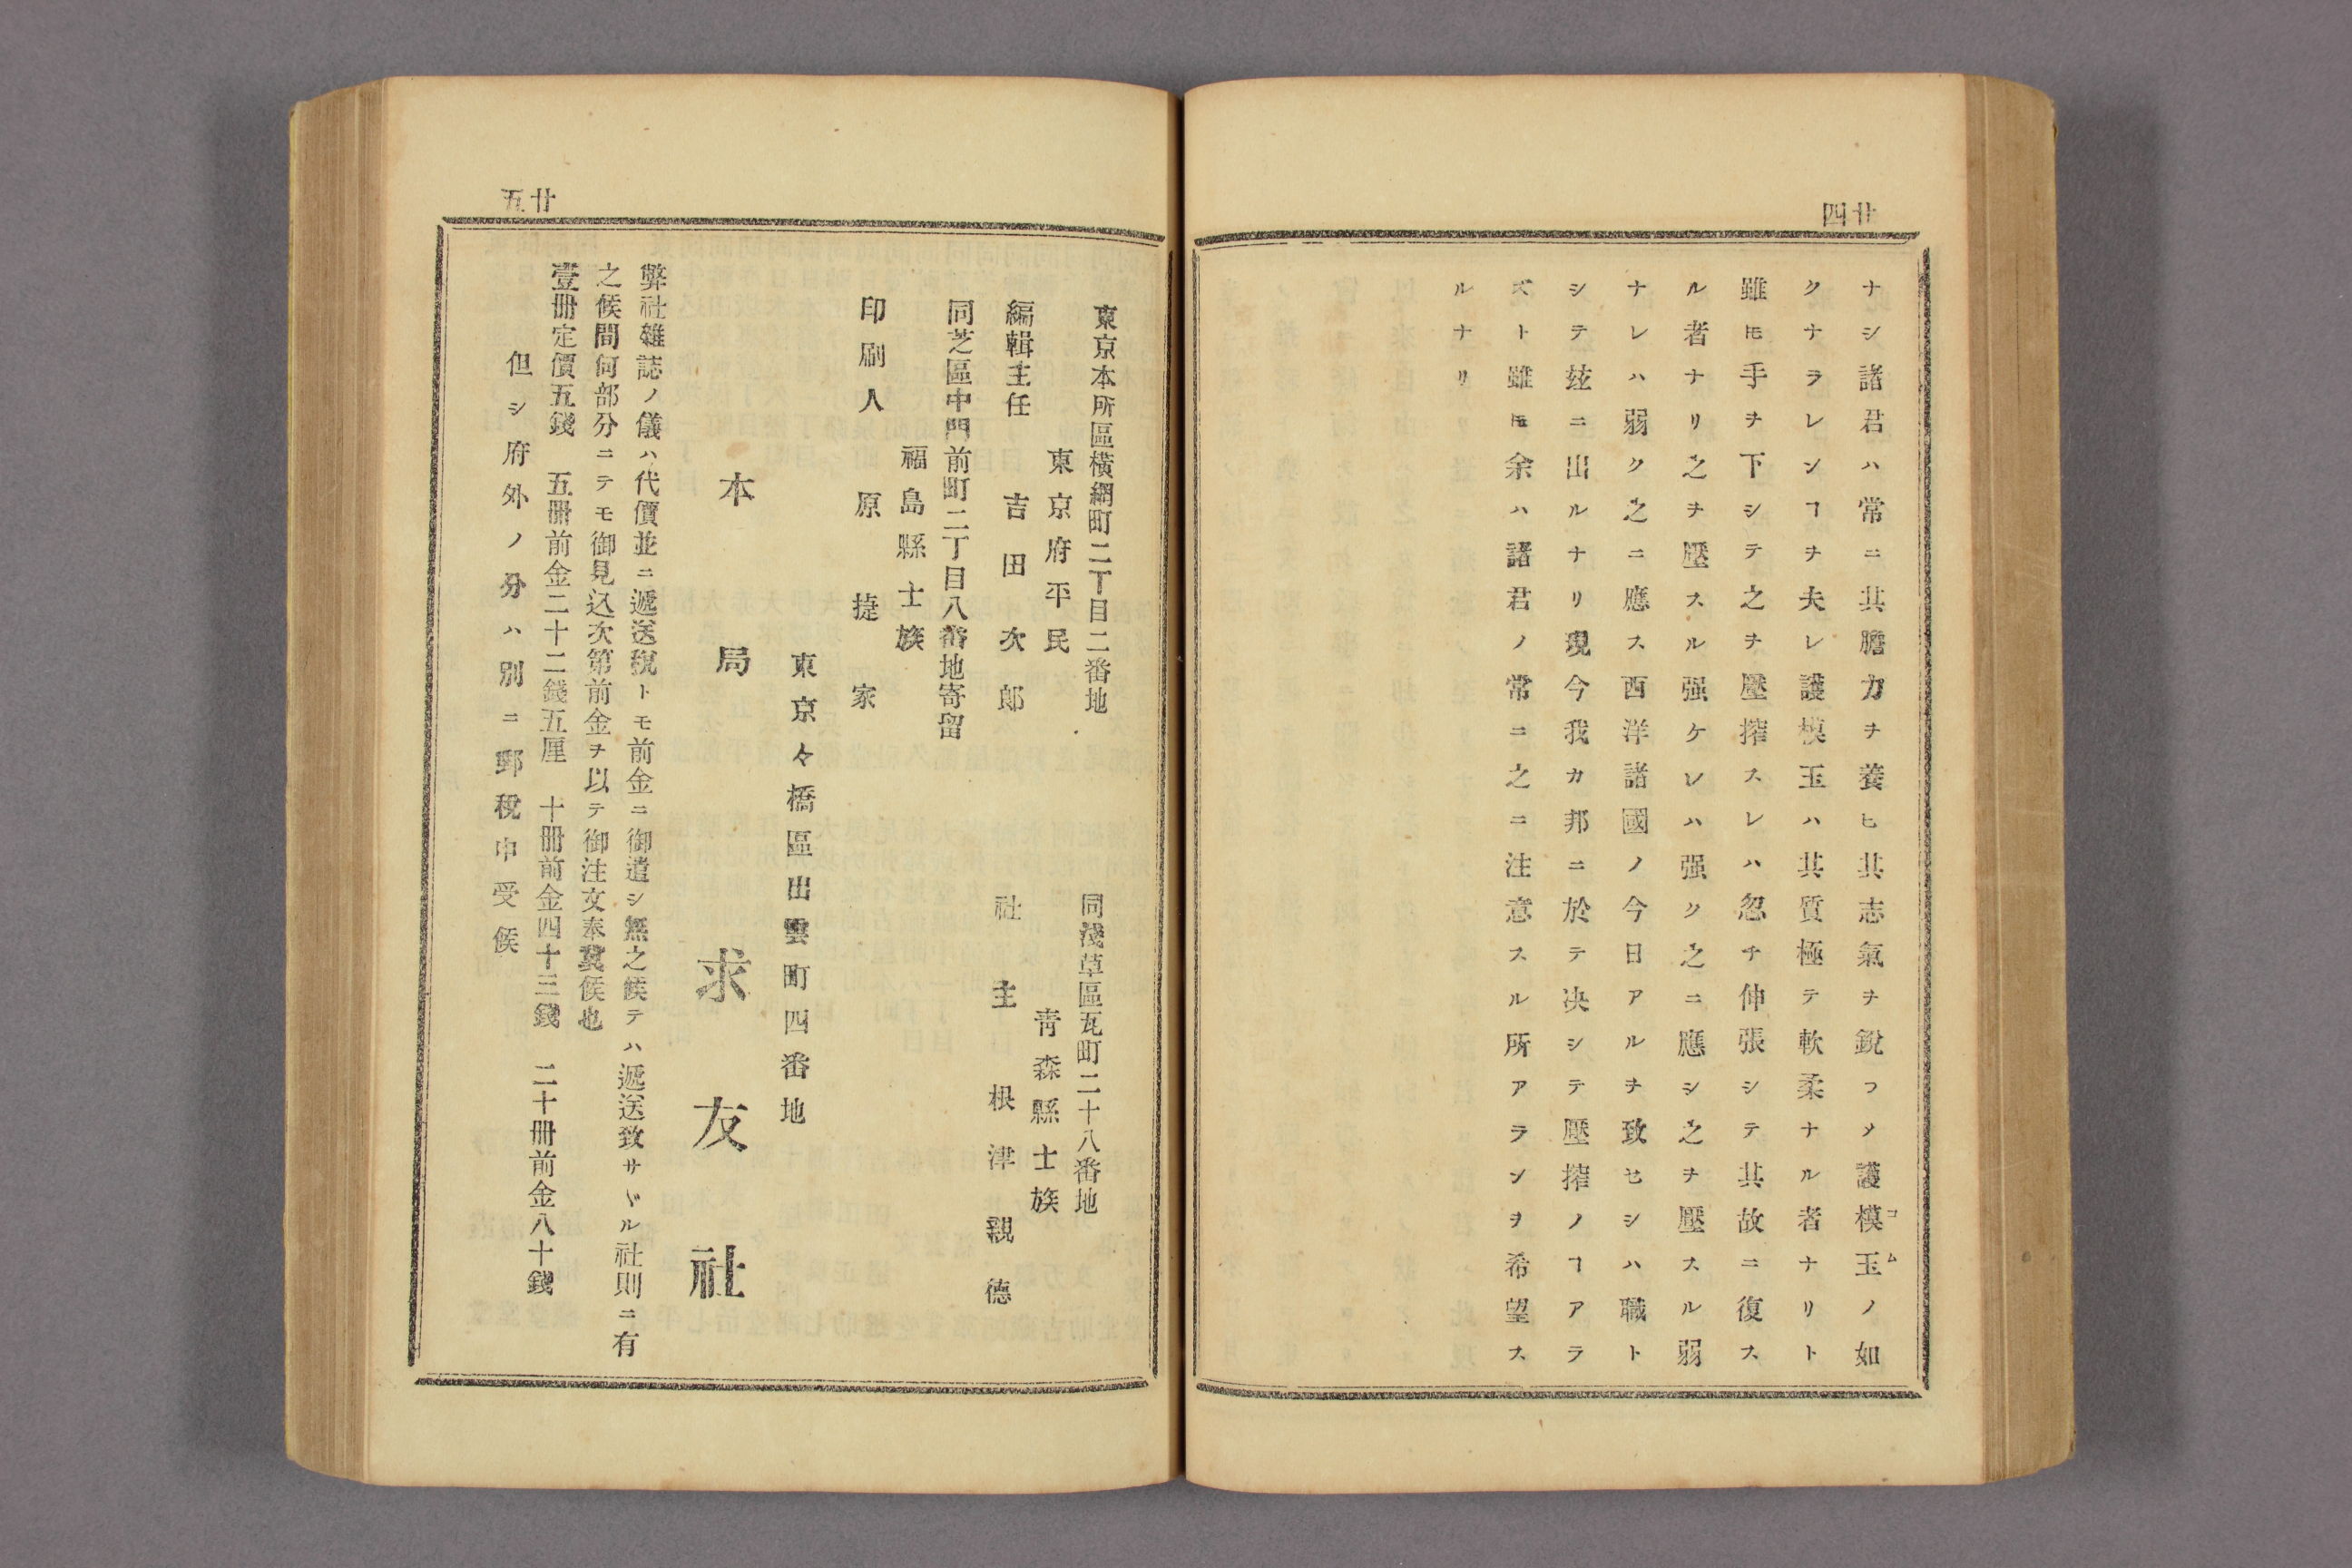 廿四
ナシ諸君ハ常ニ其膽力ヲ養ヒ其志氣ヲ銳フメ護模玉ノ如
コム
クナラレンヿヲ夫レ護模玉ハ其質極テ軟柔ナル者ナリト
雖𪜈手ヲ下シテ之ヲ壓搾スレハ忽チ伸張シテ其故ニ復ス
ル者ナリ之ヲ壓スル强ケレハ强ク之ニ應シ之ヲ壓スル弱
ナレハ弱ク之ニ應ス西洋諸國ノ今日アルヲ致セシハ職ト
シテ玆ニ出ルナリ現今我カ邦ニ於テ决シテ壓搾ノヿアラ
ズト雖𪜈余ハ諸君ノ常ニ之ニ注意スル所アランヲ希望ス
ルナリ
廿五
東京本所區橫網町二丁目二番地
東京府平民
編輯主任 吉田次郎
同淺草區瓦町二十八番地
靑森縣士族
社主 根津親德
同芝區中門前町二丁目八番地寄留
福島縣士族
印刷人 原捷家
東京々橋區出雲町四番地
本局 求友社
弊社雜誌ノ儀ハ代價並ニ遞送稅トモ前金ニ御遣シ無之候テハ遞送致サヾル社則ニ有
之候間何部分ニテモ御見込次第前金ヲ以テ御注文奉冀候也
壹冊定價五錢 五冊前金二十二錢五厘 十冊前金四十三錢 二十冊前金八十錢
但シ府外ノ分ハ別ニ郵稅申受候